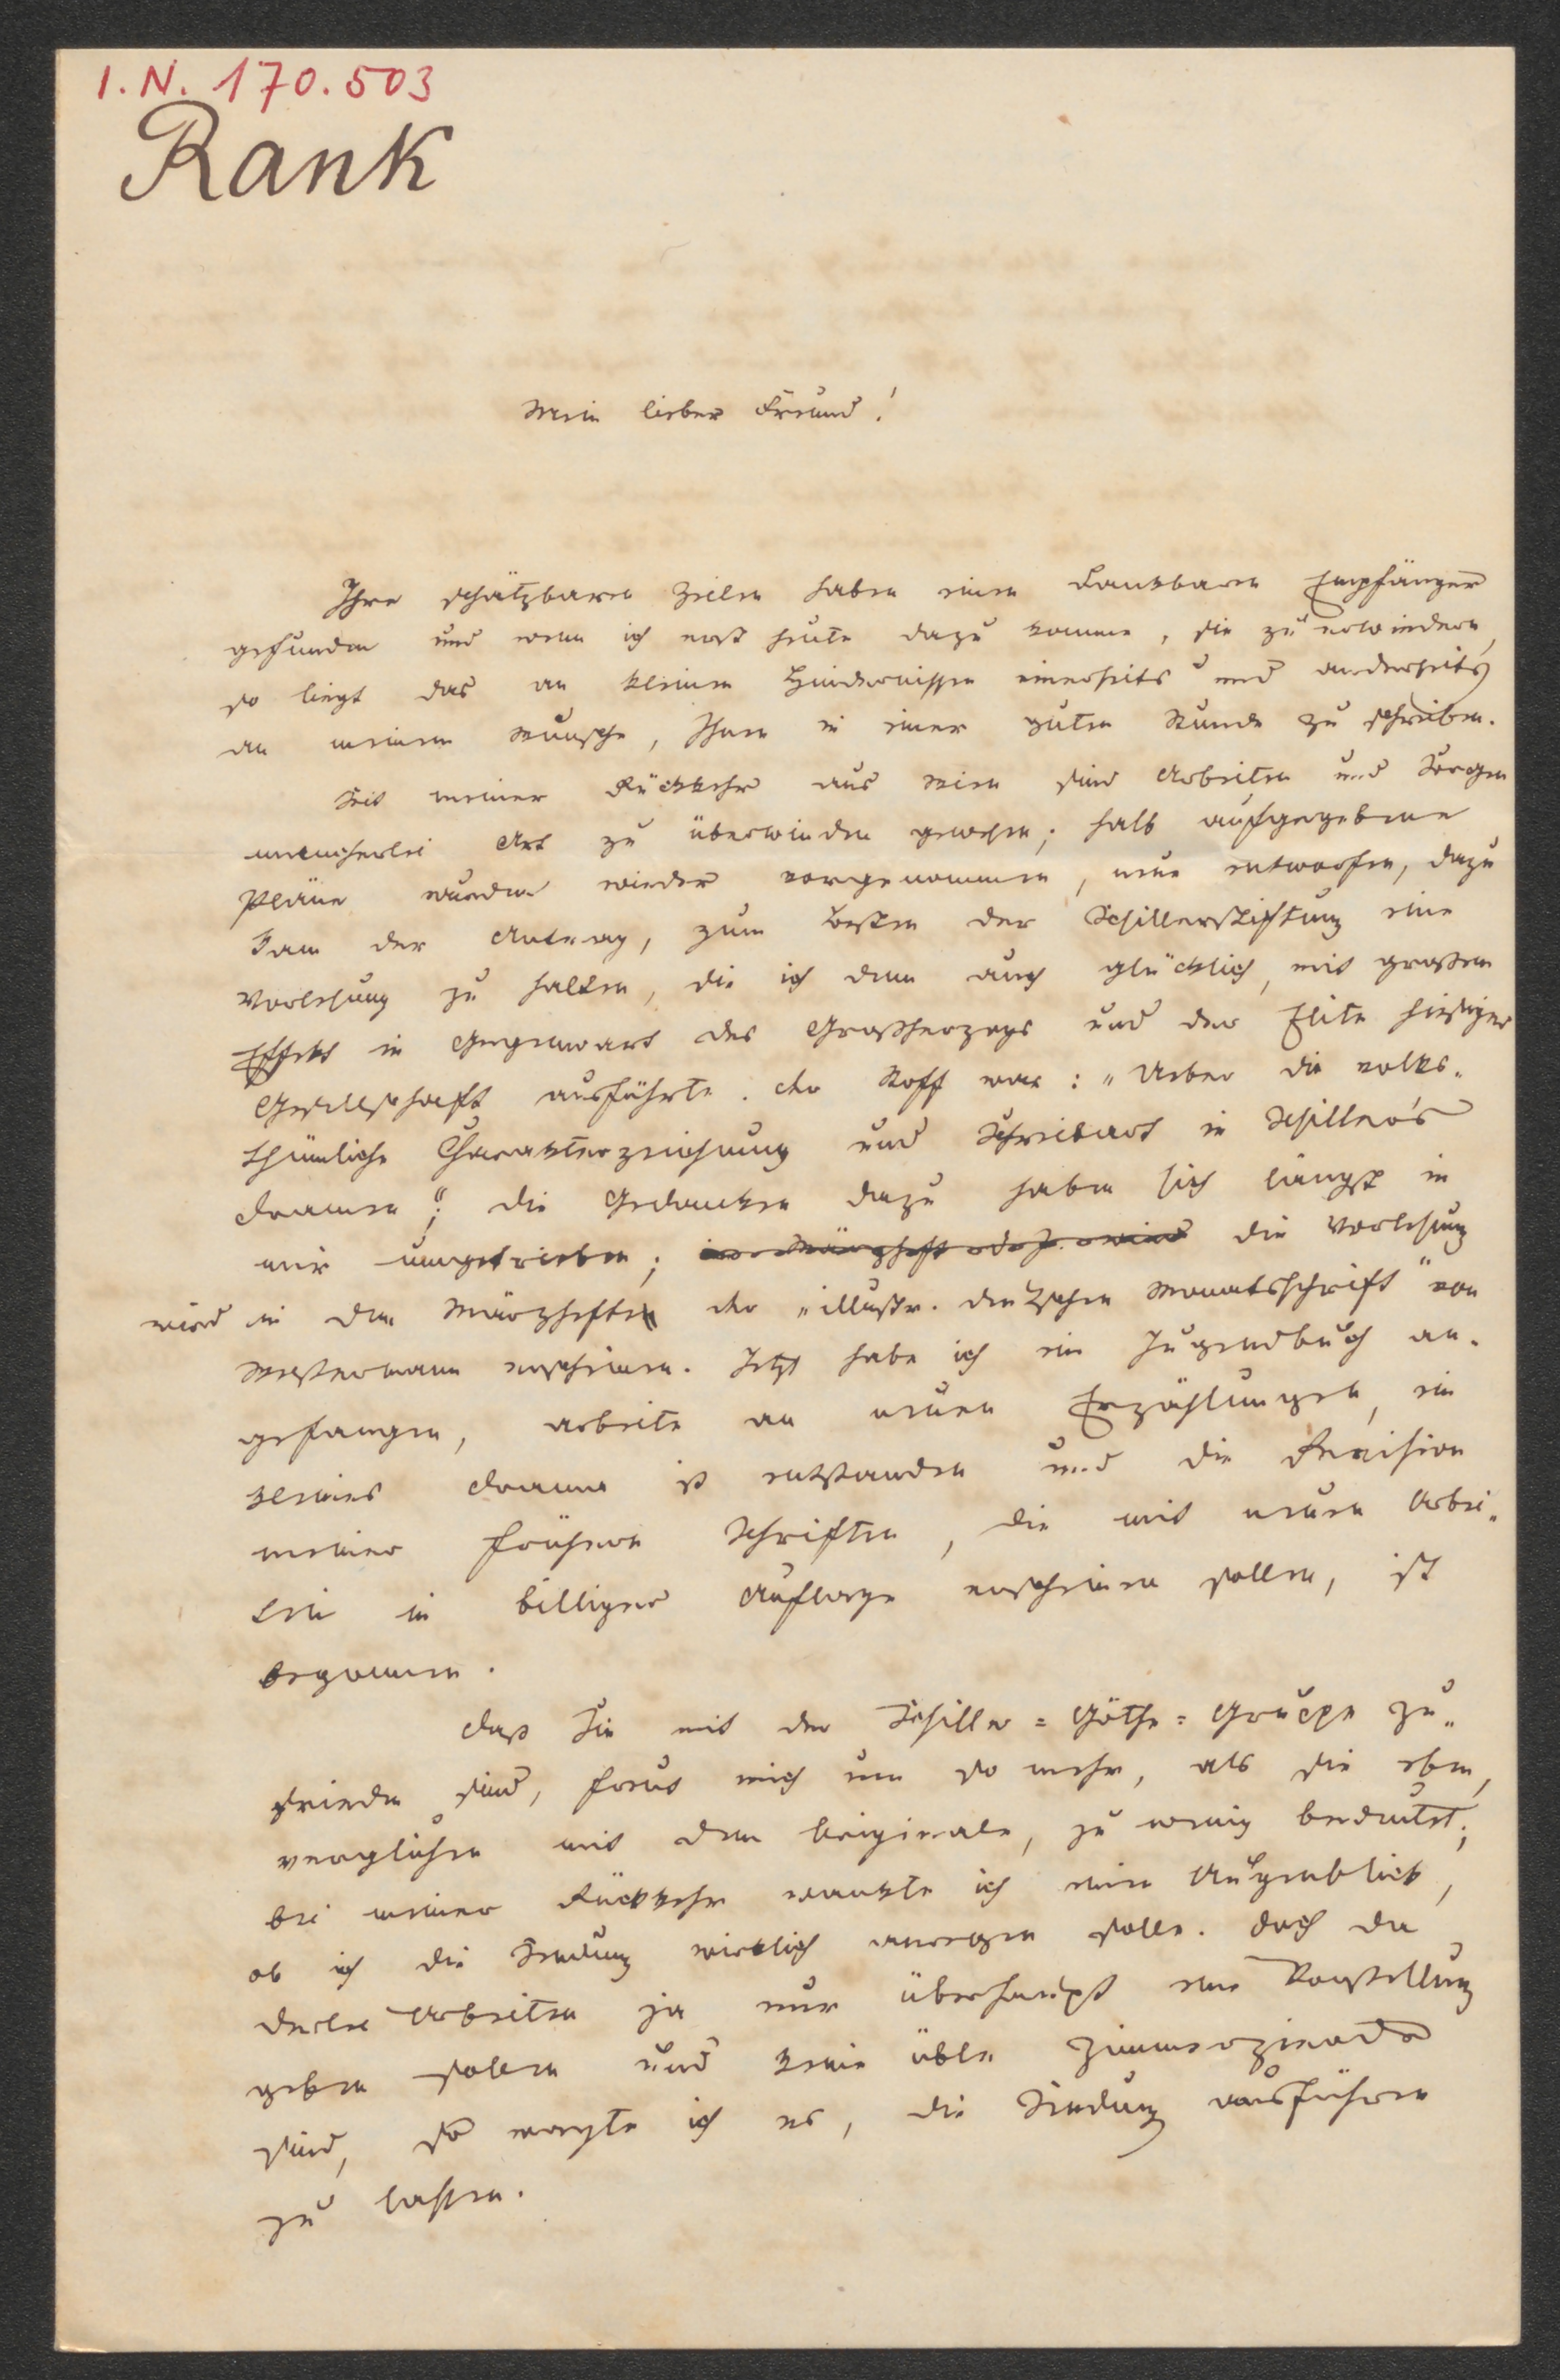 I.N. 170.503
Rank
Mein lieber Freund!
Ihre schätzbaren Zeilen haben einen dankbaren Empfänger
gefunden und wenn ich erst heute dazu komme, sie zu erwiedern,
so liegt das an kleinen Hindernissen einerseits und anderseits
an meinem Wunsche, Ihnen in einer guten Stunde zu schreiben.
Seit meiner Rückkehr aus Wien sind Arbeiten und Sorgen
mancherlei Art zu überwinden gewesen; halb aufgegebene
Pläne wurden wieder vorgenommen, neue entworfen, dazu
kam der Antrag, zum Besten der Schillerstiftung eine
Vorlesung zu halten, die ich denn auch glücklich, mit großem
Effekt in Gegenwart des Großherzogs und der Elite hiesiger
Gesellschaft ausführte. Der Stoff war: „Ueber die volks-
thümliche Charakterzeichnung und Schreibart in Schiller's
Dramen"; die Gedanken dazu haben sich längst in
mir umgetrieben; die Vorlesung
wird in den Märzheften der „illustr. deutschen Monatsschrift" von
Westermann erscheinen. Jetzt habe ich ein Jugendbuch an-
gefangen, arbeite an neuen Erzählungen, ein
kleines Drama ist entstanden und die Revision
meiner frühern Schriften, die mit neuen Arbei-
ten in billiger Auflage erscheinen sollen, ist
begonnen.
Daß Sie mit der Schiller=Göthe=Gruppe zu-
frieden sind, freut mich um so mehr, als sie eben,
verglichen mit dem Originale, zu wenig bedeutet;
bei meiner Rückkehr wankte ich einen Augenblick,
ob ich die Sendung wirklich anregen solle. Doch da
derlei Arbeiten ja nur überhaupt eine Vorstellung
geben sollen und keine üble Zimmerzierde
sind, so wagte ich es, die Sendung ausführen
zu lassen.